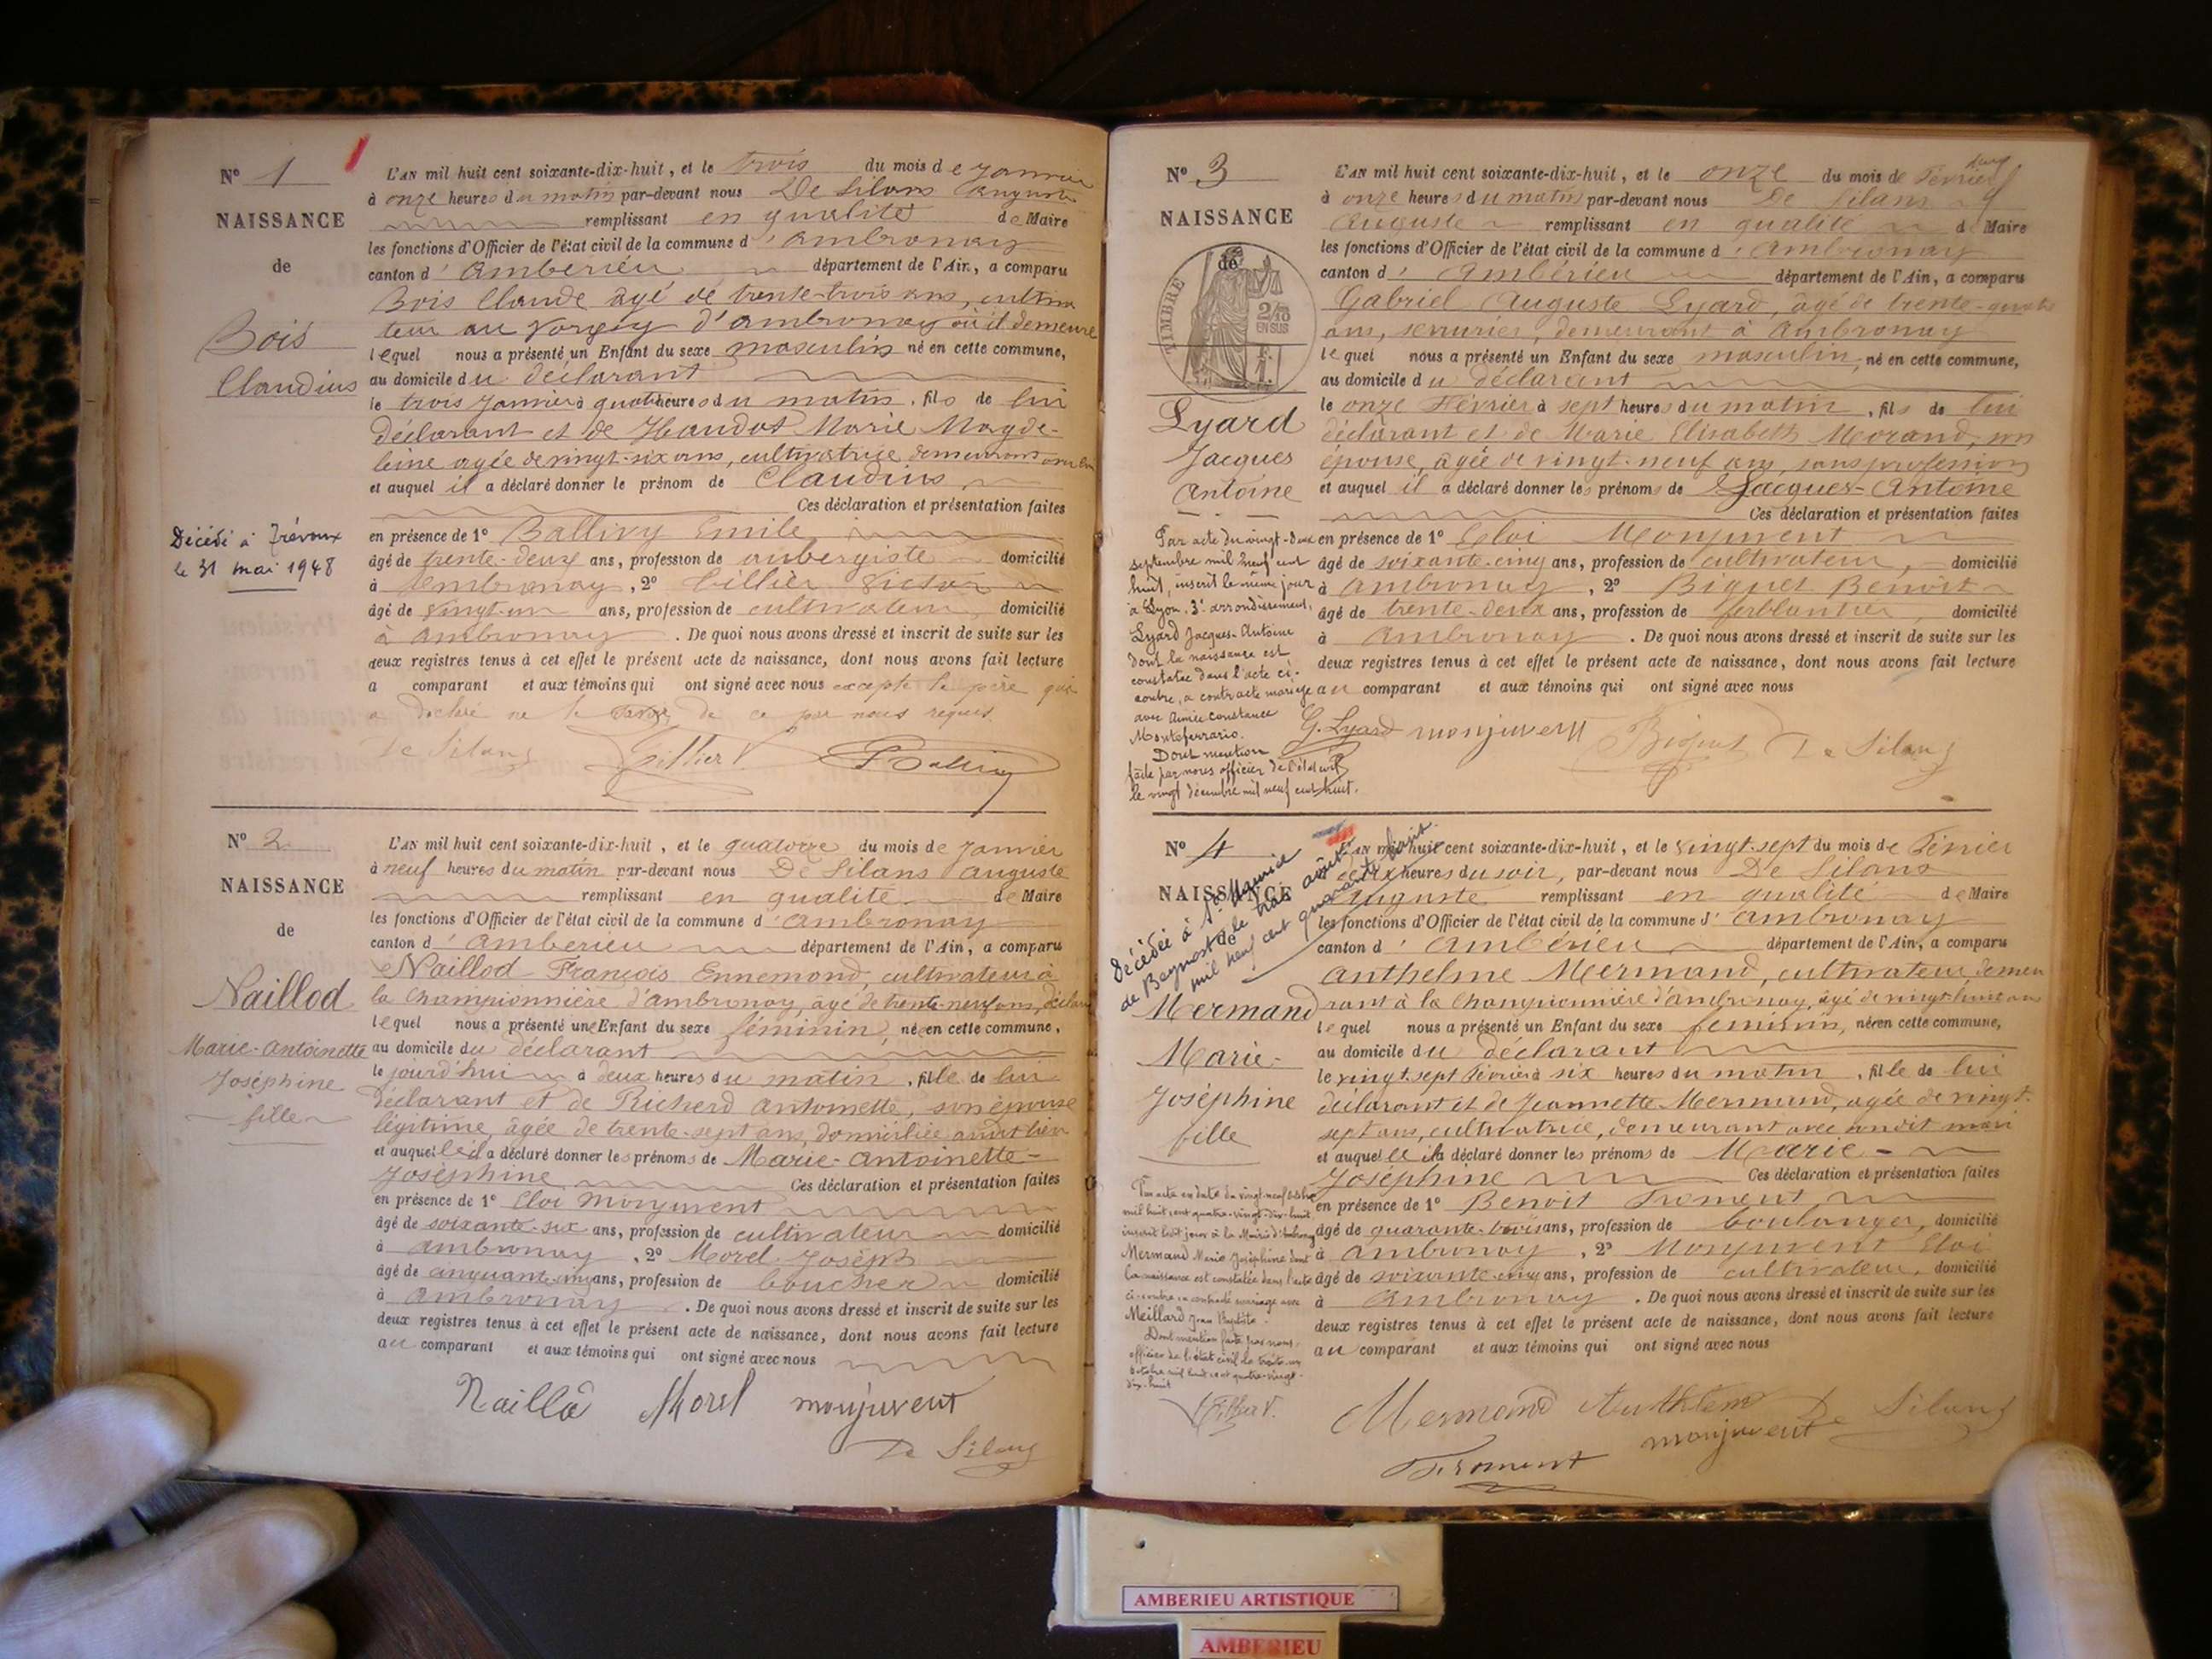 Nº 1
NAISSANCE
de
Bois
Claudius
Décédé à Trévoux
le 31 mai 1948
L'AN mil huit cent soixante-dix-huit, et le trois du mois de Janvier
à onze heures du matin par-devant nous De Silans Auguste
remplissant en qualité de Maire
les fonctions d'Officier de l'état civil de la commune d'Ambronay
canton d'Amberieu département de l'Ain, a comparu
Bois Claude âgé de trente-trois ans, cultiva
teur au d'Ambronay où il demeure
lequel nous a présenté un Enfant du sexe masculin né en cette commune,
au domicile du déclarant
le trois Janvier à quatre heures du matin, fils de lui
déclarant et de Marie Magde-
leine agée de vingt-six ans, cultivatrice demeurant
et auquel il a déclaré donner le prénom de Claudius
Ces déclaration et présentation faites
en présence de 1º Ballivy Emile
âgé de trente-deux ans, profession de aubergiste domicilié
à Ambronay, 2º Tillier Victor
âgé de vingt-un ans, profession de cultivateur, domicilié
à Ambronay. De quoi nous avons dressé et inscrit de suite sur les
deux registres tenus à cet effet le présent acte de naissance, dont nous avons fait lecture
a comparant et aux témoins qui ont signé avec nous excepté le père qui
a déclaré ne le savoir de ce par nous requis
De Silans Tillier V. Ballivy
Nº 2
NAISSANCE
de
Naillod
Marie-Antoinette
Joséphine
fille
L'AN mil huit cent soixante-dix-huit, et le quatorze du mois de Janvier
à neuf heures du matin par-devant nous De Silans Auguste
remplissant en qualité de Maire
les fonctions d'Officier de l'état civil de la commune d'Ambronay
canton d'Amberieu département de l'Ain, a comparu
Naillod François Ennemond, cultivateur à
la Championnière d'Ambronay, âgé de trente-neuf ans,
lequel nous a présenté une Enfant du sexe féminin, née en cette commune,
au domicile du déclarant
le jourd'hui à deux heures du matin, fille de lui
déclarant et de Richerd Antoinette, son épouse
légitime, âgée de trente-sept ans, domiciliée
et auquelle il a déclaré donner les prénoms de Marie-Antoinette-
Joséphine Ces déclaration et présentation faites
en présence de 1º Eloi Monjuvent
âgé de soixante-six ans, profession de cultivateur domicilié
à Ambronay, 2º Morel Joseph
âgé de cinquante-cinq ans, profession de boucher domicilié
à Ambronay. De quoi nous avons dressé et inscrit de suite sur les
deux registres tenus à cet effet le présent acte de naissance, dont nous avons fait lecture
au comparant et aux témoins qui ont signé avec nous
Naillô Morel monjuvent
De Silans
Nº 3
NAISSANCE
de
TIMBRE
2/10
EN SUS
Lyard
Jacques
Antoine
Par acte du vingt-deux
septembre mil neuf cent
huit, inscrit le même jour
à Lyon, 3e arrondissement,
Lyard Jacques-Antoine
dont la naissance est
constatée dans l'acte ci-
contre, a contracté mariage
avec Aimée Constance
Monteferrario.
Dont mention
faite par nous officier de l'état civil
le vingt décembre mil neuf cent huit.
L'AN mil huit cent soixante-dix-huit, et le onze du mois de Février
à onze heures du matin par-devant nous De Silans
Auguste remplissant en qualité de Maire
les fonctions d'Officier de l'état civil de la commune d'Ambronay
canton d'Ambérieu département de l'Ain, a comparu
Gabriel Auguste Lyard, âgé de trente-quatre
ans, serrurier, demeurant à Ambronay
lequel nous a présenté un Enfant du sexe masculin, né en cette commune,
au domicile du déclarant
le onze Février à sept heures du matin, fils de lui
déclarant et de Marie Elisabeth Morand, son
épouse, âgée de vingt-neuf ans, sans profession
et auquel il a déclaré donner les prénoms de Jacques-Antoine
Ces déclaration et présentation faites
en présence de 1º Eloi Monjuvent
âgé de soixante-cinq ans, profession de cultivateur, domicilié
à Ambronay, 2º Biguet Benoit
âgé de trente-deux ans, profession de ferblantier, domicilié
à Ambronay. De quoi nous avons dressé et inscrit de suite sur les
deux registres tenus à cet effet le présent acte de naissance, dont nous avons fait lecture
au comparant et aux témoins qui ont signé avec nous
G. Lyard monjuvent Biguet De Silans
Nº 4
NAISSANCE
de
Décédée à St Maurice
de Beynost le trois août
mil neuf cent quarante huit.
Mermand
Marie-
Joséphine
fille
Par acte en date du vingt-neuf octobre
mil huit cent quatre-vingt-dix-huit
inscrit ledit jour à la Mairie d'Ambronay
Mermand Marie Joséphine dont
la naissance est constatée dans l'acte
ci-contre a contracté mariage avec
Meillard Jean Baptiste.
Dont mention faite par nous
officier de l'état civil le trente-un
octobre mil huit cent quatre-vingt-
dix-huit
Tillier V.
L'AN mil huit cent soixante-dix-huit, et le vingt-sept du mois de Février
à heures du soir, par-devant nous De Silans
Auguste remplissant en qualité de Maire
les fonctions d'Officier de l'état civil de la commune d'Ambronay
canton d'Ambérieu département de l'Ain, a comparu
Anthelme Mermand, cultivateur demeu
rant à la Championnière d'Ambronay, âgé de vingt-huit ans
lequel nous a présenté un Enfant du sexe féminin, née en cette commune,
au domicile du déclarant
le vingt-sept Février à six heures du matin, fille de lui
déclarant et de Jeannette Mermand, agée de vingt-
sept ans, cultivatrice, demeurant avec son dit mari
et auquelle il a déclaré donner les prénoms de Marie-
Joséphine Ces déclaration et présentation faites
en présence de 1º Benoit Froment
âgé de quarante-trois ans, profession de boulanger, domicilié
à Ambronay, 2º Monjuvent Eloi
âgé de soixante-cinq ans, profession de cultivateur, domicilié
à Ambronay. De quoi nous avons dressé et inscrit de suite sur les
deux registres tenus à cet effet le présent acte de naissance, dont nous avons fait lecture
au comparant et aux témoins qui ont signé avec nous
Mermand Anthelme De Silans
monjuvent
Froment
AMBERIEU ARTISTIQUE
AMBERIEU